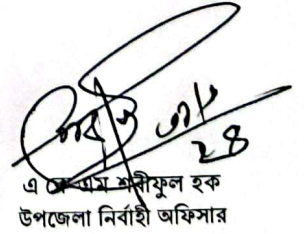 ২৪
এ কে এম শরীফুল হক
উপজেলা নির্বাহী অফিসার